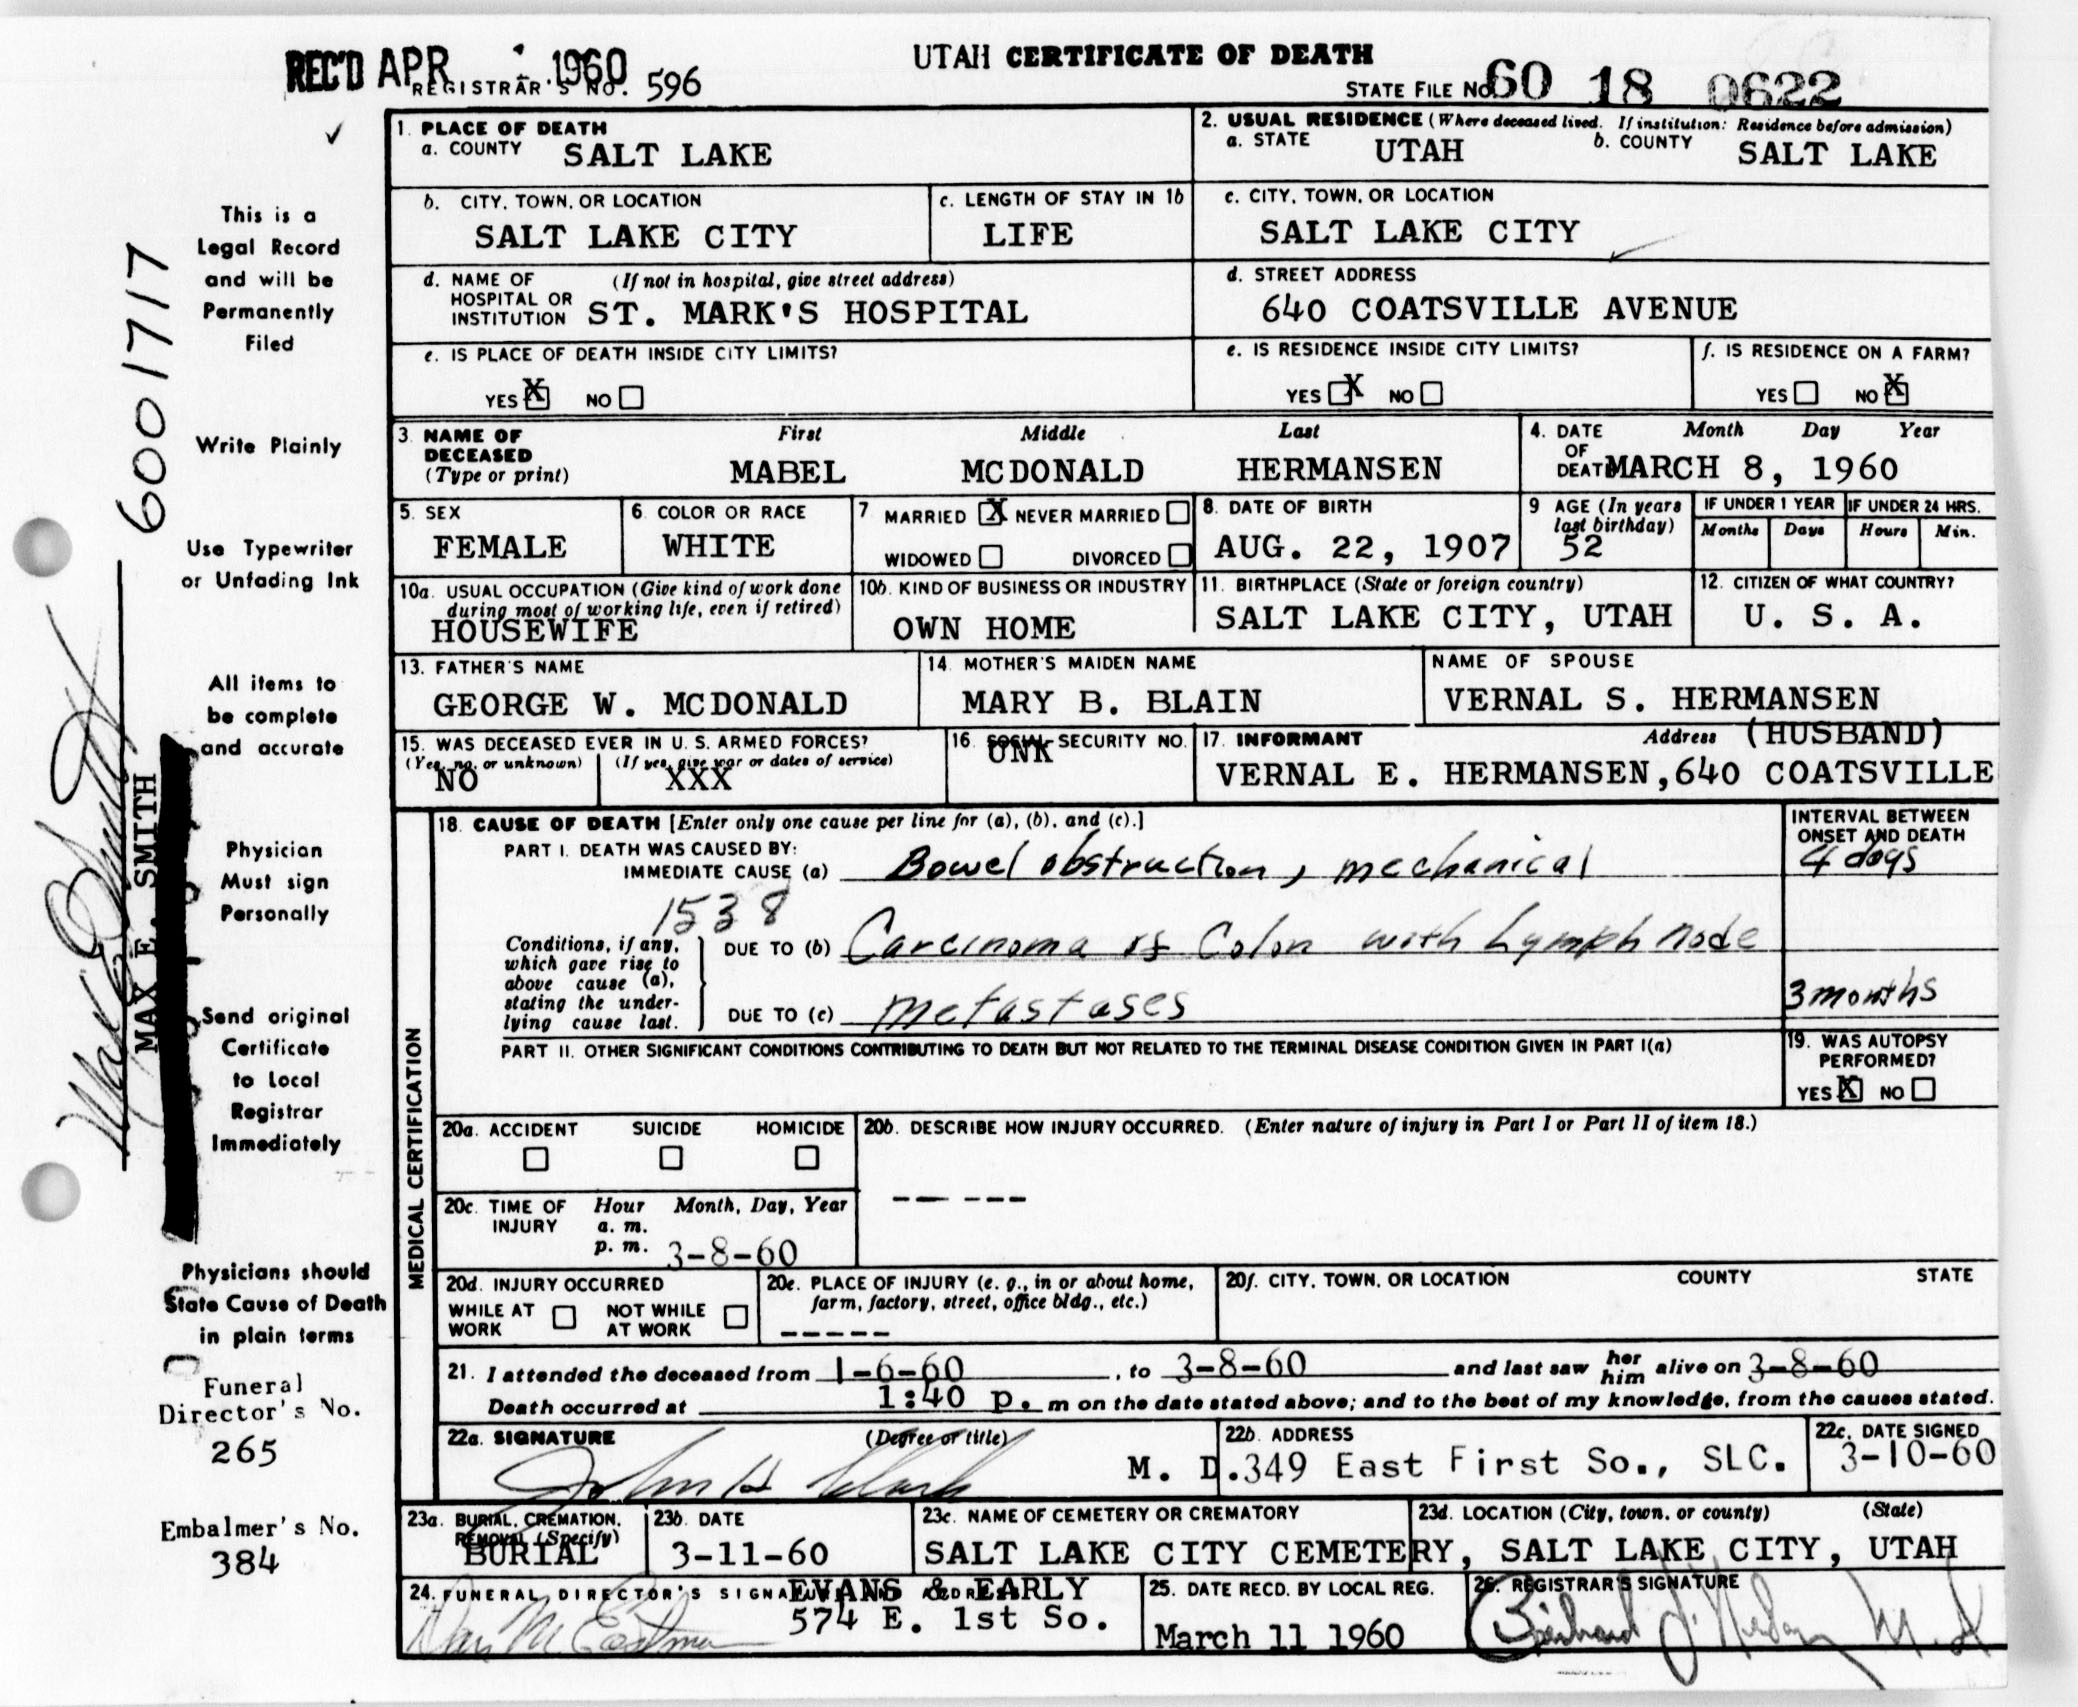 UTAH CERTIFICATE OF DEATH
REC'D APR 1960
REGISTRAR'S NO. 596
STATE FILE NO. 60 18 0622
1. PLACE OF DEATH
a. COUNTY SALT LAKE
2. USUAL RESIDENCE (Where deceased lived. If institution: Residence before admission)
a. STATE UTAH b. COUNTY SALT LAKE
b. CITY, TOWN, OR LOCATION
SALT LAKE CITY
c. LENGTH OF STAY IN 1b
LIFE
c. CITY, TOWN, OR LOCATION
SALT LAKE CITY
d. NAME OF HOSPITAL OR INSTITUTION (If not in hospital, give street address)
ST. MARK'S HOSPITAL
d. STREET ADDRESS
640 COATSVILLE AVENUE
e. IS PLACE OF DEATH INSIDE CITY LIMITS?
YES X NO
e. IS RESIDENCE INSIDE CITY LIMITS?
YES X NO
f. IS RESIDENCE ON A FARM?
YES NO X
3. NAME OF DECEASED (Type or print)
First Middle Last
MABEL MCDONALD HERMANSEN
4. DATE OF DEATH Month Day Year
MARCH 8, 1960
5. SEX
FEMALE
6. COLOR OR RACE
WHITE
7 MARRIED X NEVER MARRIED
WIDOWED DIVORCED
8. DATE OF BIRTH
AUG. 22, 1907
9 AGE (In years last birthday)
52
IF UNDER 1 YEAR
Months Days
IF UNDER 24 HRS.
Hours Min.
10a. USUAL OCCUPATION (Give kind of work done during most of working life, even if retired)
HOUSEWIFE
10b. KIND OF BUSINESS OR INDUSTRY
OWN HOME
11. BIRTHPLACE (State or foreign country)
SALT LAKE CITY, UTAH
12. CITIZEN OF WHAT COUNTRY?
U. S. A.
13. FATHER'S NAME
GEORGE W. MCDONALD
14. MOTHER'S MAIDEN NAME
MARY B. BLAIN
NAME OF SPOUSE
VERNAL S. HERMANSEN
15. WAS DECEASED EVER IN U. S. ARMED FORCES?
(Yes, no, or unknown) (If yes, give war or dates of service)
NO XXX
16. SOCIAL SECURITY NO.
UNK
17. INFORMANT Address (HUSBAND)
VERNAL E. HERMANSEN, 640 COATSVILLE
MEDICAL CERTIFICATION
18. CAUSE OF DEATH [Enter only one cause per line for (a), (b), and (c).]
INTERVAL BETWEEN ONSET AND DEATH
PART I. DEATH WAS CAUSED BY:
IMMEDIATE CAUSE (a) Bowel obstruction, mechanical
4 days
1538
Conditions, if any, which gave rise to above cause (a), stating the underlying cause last.
DUE TO (b) Carcinoma of Colon with Lymph node
DUE TO (c) metastases
3 months
PART II. OTHER SIGNIFICANT CONDITIONS CONTRIBUTING TO DEATH BUT NOT RELATED TO THE TERMINAL DISEASE CONDITION GIVEN IN PART I(a)
19. WAS AUTOPSY PERFORMED?
YES X NO
20a. ACCIDENT SUICIDE HOMICIDE
20b. DESCRIBE HOW INJURY OCCURRED. (Enter nature of injury in Part I or Part II of item 18.)
-- ---
20c. TIME OF INJURY Hour Month, Day, Year
a. m.
p. m. 3-8-60
20d. INJURY OCCURRED
WHILE AT WORK NOT WHILE AT WORK
20e. PLACE OF INJURY (e. g., in or about home, farm, factory, street, office bldg., etc.)
-----
20f. CITY, TOWN, OR LOCATION COUNTY STATE
21. I attended the deceased from 1-6-60, to 3-8-60 and last saw her him alive on 3-8-60
Death occurred at 1:40 p. m on the date stated above; and to the best of my knowledge, from the causes stated.
22a. SIGNATURE (Degree or title)
John H Clark M. D.
22b. ADDRESS
349 East First So., SLC.
22c. DATE SIGNED
3-10-60
23a. BURIAL, CREMATION, REMOVAL (Specify)
BURIAL
23b. DATE
3-11-60
23c. NAME OF CEMETERY OR CREMATORY
SALT LAKE CITY CEMETERY,
23d. LOCATION (City, town, or county) (State)
SALT LAKE CITY, UTAH
24. FUNERAL DIRECTOR'S SIGNATURE AND ADDRESS
EVANS & EARLY
574 E. 1st So.
25. DATE RECD. BY LOCAL REG.
March 11 1960
26. REGISTRAR'S SIGNATURE
This is a
Legal Record
and will be
Permanently
Filed
Write Plainly
Use Typewriter
or Unfading Ink
All items to
be complete
and accurate
Physician
Must sign
Personally
Send original
Certificate
to Local
Registrar
Immediately
Physicians should
State Cause of Death
in plain terms
Funeral
Director's No.
265
Embalmer's No.
384
6001717
Max E. Smith
MAX E. SMITH